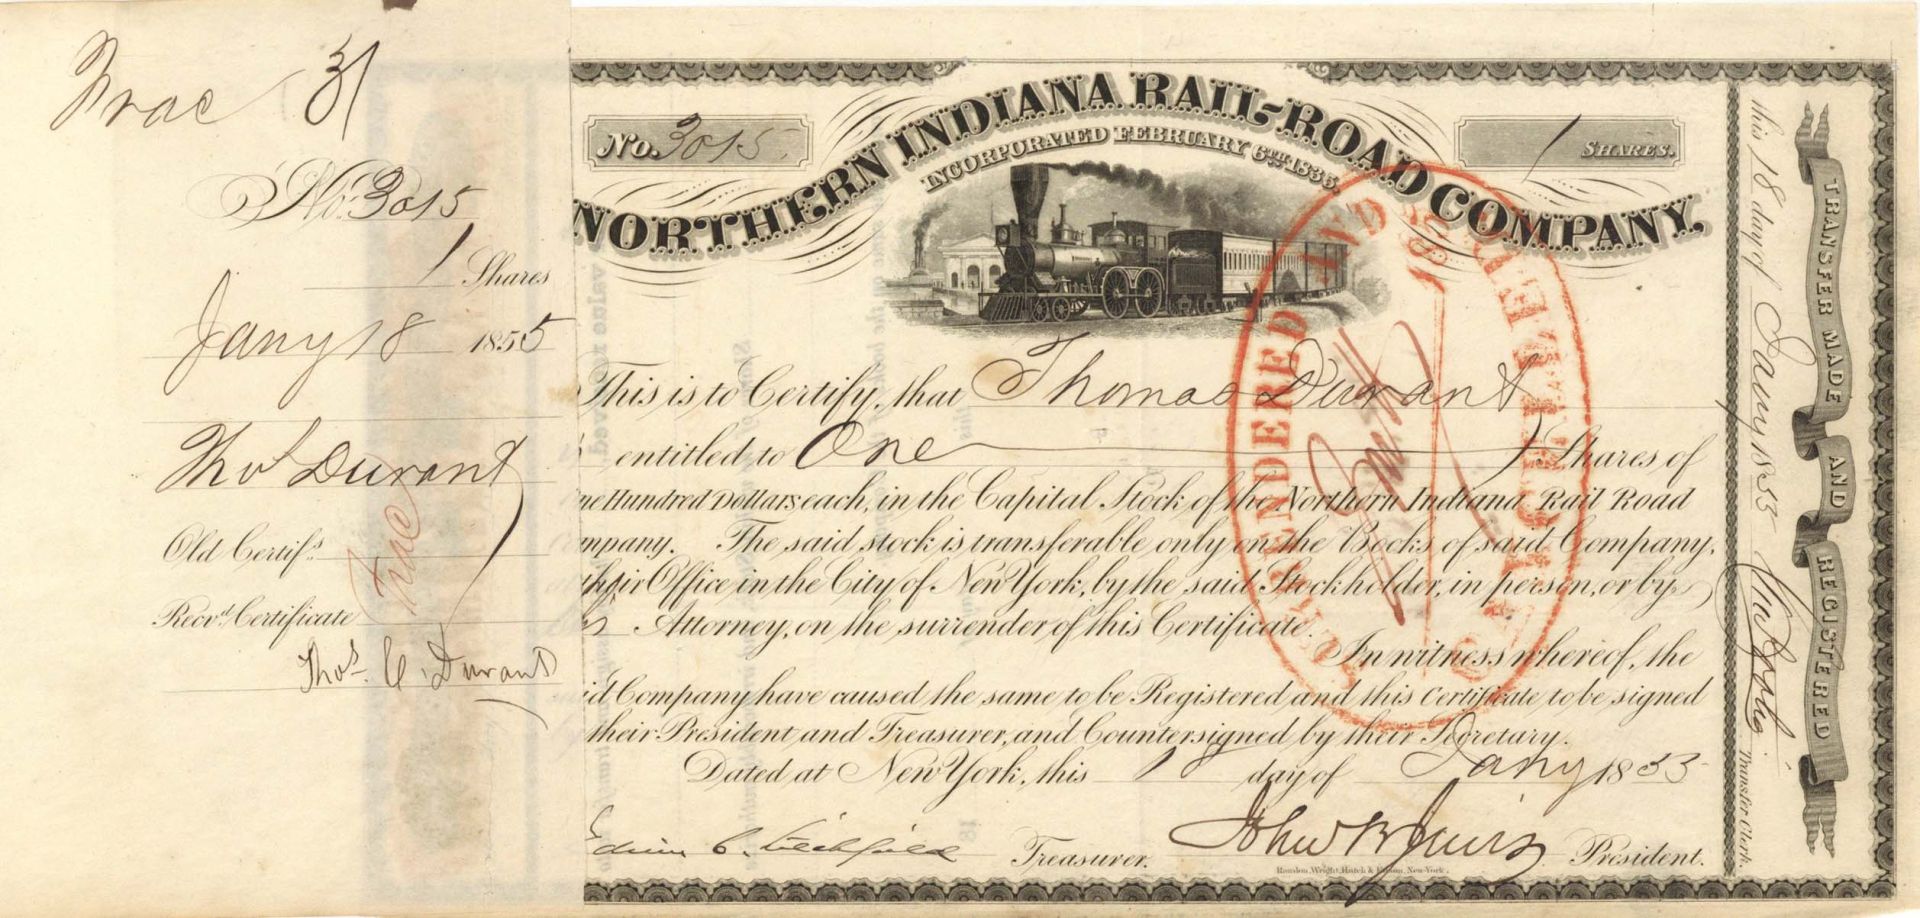 Frac 31
No. 3015
1 Shares
Jany 18 1855
Thos Durant
Old Certifs.
Recvd. Certificate
Frac
Thos. C. Durant
No. 3015.
1 SHARES.
NORTHERN INDIANA RAIL-ROAD COMPANY.
INCORPORATED FEBRUARY 6TH 1835.
This is to Certify, that Thomas Durant
entitled to One Shares of
ne Hundred Dollars each, in the Capital Stock of the Northern Indiana Rail Road
mpany. The said stock is transferable only on the Books of said Company,
their Office in the City of New York, by the said Stockholder, in person, or by
Attorney, on the surrender of this Certificate.
In witness whereof, the
id Company have caused the same to be Registered and this Certificate to be signed
their President and Treasurer, and Countersigned by their Secretary.
Dated at New York, this 18 day of Jany 1855
Edwin C. Litchfield Treasurer. John B Jervis President.
Rawdon, Wright, Hatch & Edson, New-York.
SURRENDERED AND
CANCELLED
TRANSFER MADE AND REGISTERED
this 18 day of Jany 1855 Transfer Clerk.